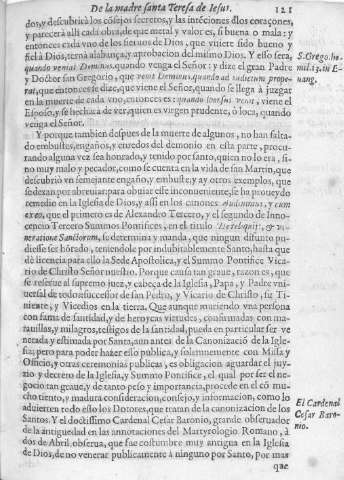 De la madre santa Teresa de Iesus. 121
dos, y descubrirà los cõsejos secretos, y las intẽciones d'los coraçones,
y parecerà alli cada obra, de que metal y valor es, si buena o mala: y
entonces cada vno de los sieruos de Dios, que vuiere sido bueno y
fiel à Dios, ternà alabança, y aprobacion del mismo Dios. Y esto serà,
quando veniat Dominus. quando venga el Señor: y dize el gran Padre
y Doctor san Gregorio, que venit Dominus, quando ad iudicium prope-
rat, que entonces se dize, que viene el Señor, quando se llega à juzgar
en la muerte de cada vno, entonces es: quando sponsus venit, viene el
Esposo, y se hecharà de ver, quien es virgen prudente, ò loca, quando
venga el Señor.
S. Grego. ho.
mil. 13. in E-
uang.
Y porque tambien despues de la muerte de algunos, no han falta-
do embustes, engaños, y enredos del demonio en esta parte, procu-
rando alguna vez sea honrado, y tenido por santo, quien no lo era, si-
no muy malo y pecador, como se cuenta en la vida de san Martin, que
descubriò en semejante engaño, y embuste, y ay otros exemplos, que
se dexan por abreuiar: para obuiar este inconueniente, se ha proueydo
remedio en la Iglesia de Dios, y assi en los canones Audiuimus, y cum
ex eo, que el primero es de Alexandro Tercero, y el segundo de Inno-
cencio Tercero Summos Pontifices, en el titulo De reliquijs, & ve-
neratione Sanctorum, se determina y manda, que ningun difunto pu-
diesse ser hõrado, teniendole por indubitablemente Santo, hasta que
dè licencia para ello la Sede Apostolica, y el Summo Pontifice Vica-
rio de Christo Señor nuestro. Porque causa tan graue, razon es, que
se reserue al supremo juez, y cabeça de la Iglesia, Papa, y Padre vni-
uersal de todos successor de san Pedro, y Vicario de Christo, su Te-
niente, y Vicedios en la tierra. Que aunque muriendo vna persona
con fama de santidad, y de heroycas virtudes, confirmadas con ma-
rauillas, y milagros, testigos de la santidad, pueda en particular ser ve
nerada y estimada por Santa, aun antes de la Canonizaciõ de la Igle-
sia; pero para poder hazer esso publica, y solemnemente con Missa y
Officio, y otras ceremonias publicas, es obligacion aguardar el juy-
zio y decreto de la Iglesia, y Summo Pontifice, el qual por ser el ne-
gocio tan graue, y de tanto peso y importancia, procede en el cõ mu-
cho tiento, y madura consideracion, consejo, y informacion, como lo
aduierten todo esto los Dotores, que tratan de la canonizacion de los
Santos. Y el doctissimo Cardenal Cesar Baronio, grande obseruador
de la antiguedad en las annotaciones del Martyrologio Romano, à
dos de Abril, obserua, que fue costumbre muy antigua en la Iglesia
de Dios, de no venerar publicamente à ninguno por Santo, por mas
que
El Cardenal
Cesar Baro-
nio.